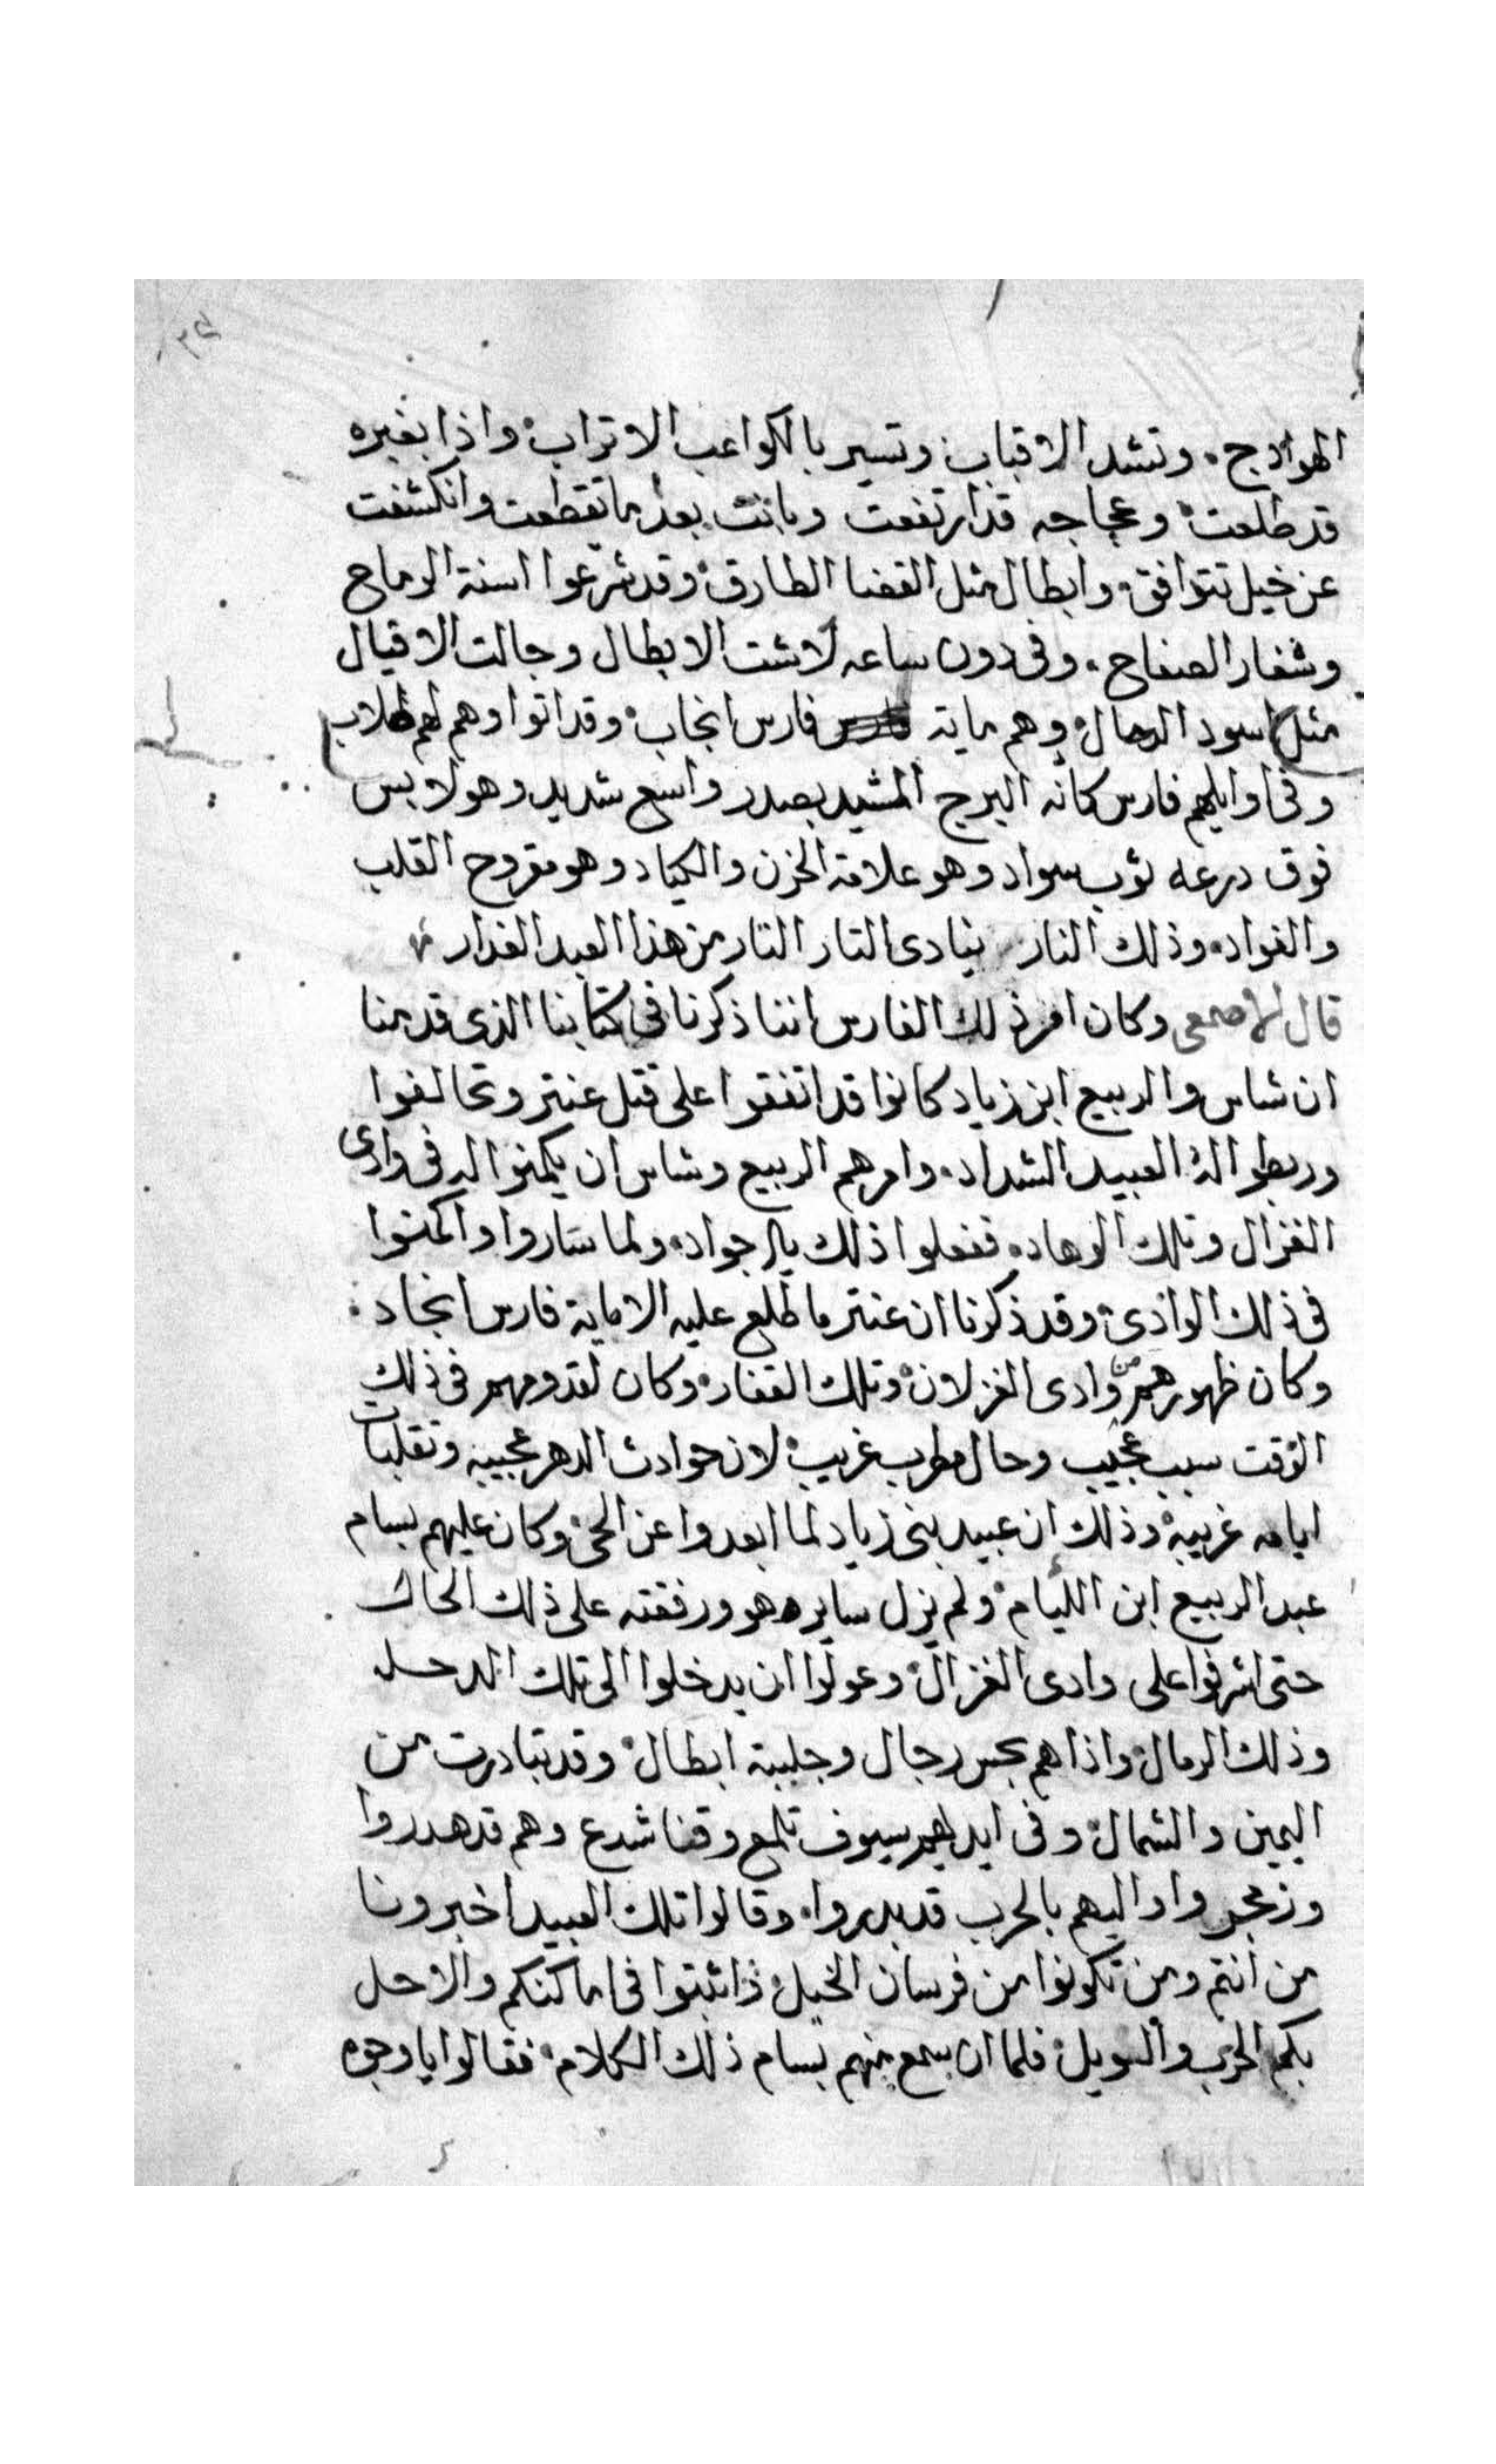 الهوادج. وتشد الاقباب وتسير بالكواعب الاتراب واذا بغبره
قد طلعت وعجاجه قد ارتفعت وبانت بعد ما تقطعت وانكشفت
عن خيل تتوافق وابطال مثل القضا الطارق وقد شرعوا اسنة الرماح
وشفار الصفاح. وفى دون ساعه لاشت الابطال وجالت الاقيال
مثل اسود الدحال وهم ماية فارس انجاب وقد اتوا وهم لهم طلاب
وفى اوايلهم فارس كانه البرج المشيد بصدر واسع شديد وهو لابس
فوق درعه ثوب سواد وهو علامة الحزن والكياد وهو مقروح القلب
والفواد. وذلك ينادى التار التار من هذا العبد الغدار
قال الاصمعى وكان امر ذلك الفارس اننا ذكرنا فى كتابنا الذى قدمنا
ان شاس والربيع ابن زياد كانوا قد اتفقوا على قتل عنتر وتحالفوا
وربطوا له العبيد الشداد. وامرهم الربيع وشاس ان يكمنوا له فى وادى
الغزال وتلك الوهاد. ففعلوا ذلك يالاجواد. ولما ساروا واكمنوا
فى ذلك الوادى وقد ذكرنا ان عنتر ما طلع عليه الا ماية فارس انجاد
وكان ظهورهم من وادى الغزلان وتلك القفار وكان لقدومهم فى ذلك
الوقت سبب عجيب وحال مطرب غريب لان حوادث الدهر عجيبه وتقلبات
ايامه غريبة وذلك ان عبيد بنى زياد لما ابعدوا عن الحى وكان عليهم بسام
عبد الربيع ابن الليام ولم يزل ساير هو ورفقته على ذلك الحال
حتى اشرفوا على وادى الغزال وعولوا ان يدخلوا الى تلك الدحل
وذلك الرمال واذا هم بحس رجال وجلبة ابطال وقد تبادرت من
اليمين والشمال وفى ايديهم سيوف تلمع وقنا شرع وهم قد هدروا
وزمجروا واليهم بالحرب قد بدروا. وقالوا تلك العبيد اخبرونا
من انتم ومن تكونوا من فرسان الخيل واثبتوا فى اماكنكم والا حل
بكم الحرب والويل فلما ان سمع منهم بسام ذلك الكلام فقالوا يا وجوه